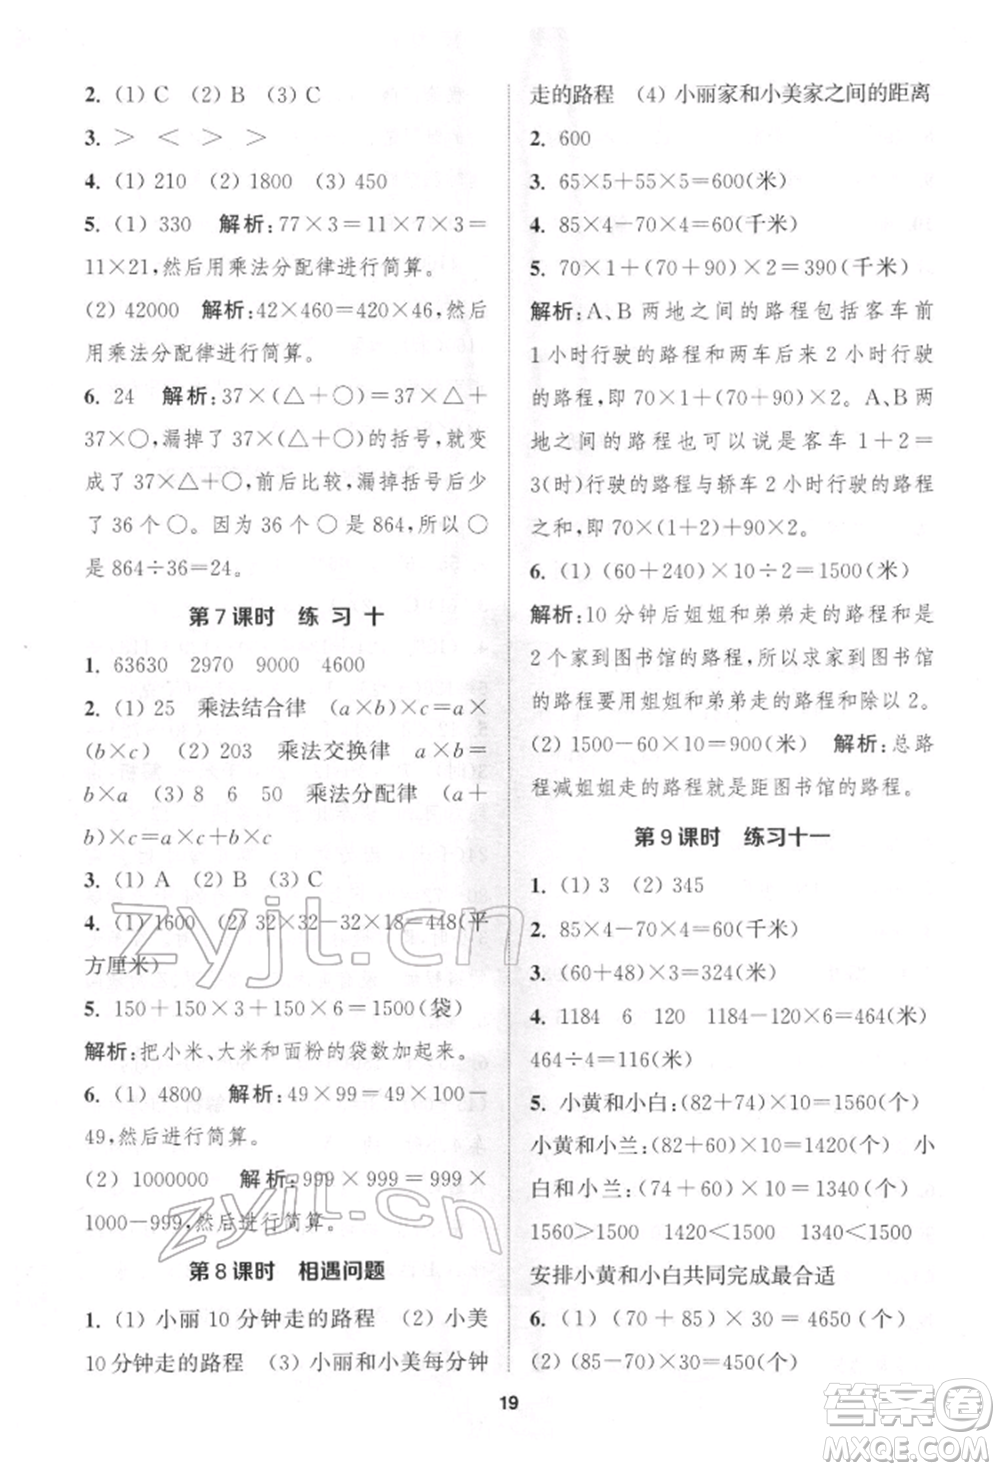 2. (1) C (2) B (3) C
3. > < > >
4. (1) 210 (2) 1800 (3) 450
5. (1) 330 解析:77×3=11×7×3=
11×21,然后用乘法分配律进行简算。
(2) 42000 解析:42×460=420×46,然后
用乘法分配律进行简算。
6. 24 解析:37×(△+○)=37×△+
37×○,漏掉了(△+○)的括号,就变
成了 37×△+○,前后比较,漏掉括号后少
了 36 个 ○。因为 36 个 ○ 是 864,所以 ○
是 864÷36=24。
第 7 课时 练 习 十
1. 63630 2970 9000 4600
2. (1) 25 乘法结合律 (a×b)×c=a×
(b×c) (2) 203 乘法交换律 a×b=
b×a (3) 8 6 50 乘法分配律 (a+
b)×c=a×c+b×c
3. (1) A (2) B (3) C
4. (1) 1600 (2) 32×32-32×18=448(平
方厘米)
5. 150+150×3+150×6=1500(袋)
解析:把小米、大米和面粉的袋数加起来。
6. (1) 4800 解析:49×99=49×100-
49,然后进行简算。
(2) 1000000 解析:999×999=999×
1000-999,然后进行简算。
第 8 课时 相遇问题
1. (1) 小丽 10 分钟走的路程 (2) 小美
10 分钟走的路程 (3) 小丽和小美每分钟
走的路程 (4) 小丽家和小美家之间的距离
2. 600
3. 65×5+55×5=600(米)
4. 85×4-70×4=60(千米)
5. 70×1+(70+90)×2=390(千米)
解析:A、B 两地之间的路程包括客车前
1 小时行驶的路程和两车后来 2 小时行驶
的路程,所以可以先分别求出来再相加。A、B 两
地之间的路程也可以说是客车 1+2=
3(时)行驶的路程与轿车 2 小时行驶的路程
之和,即 70×(1+2)+90×2。
6. (1) (60+240)×10÷2=1500(米)
解析:10 分钟后姐姐和弟弟走的路程和是
2 个家到图书馆的路程,所以求家到图书馆
的路程要用姐姐和弟弟走的路程和除以 2。
(2) 1500-60×10=900(米) 解析:总路
程减姐姐走的路程就是距图书馆的路程。
第 9 课时 练习十一
1. (1) 3 (2) 345
2. 85×4-70×4=60(千米)
3. (60+48)×3=324(米)
4. 1184 6 120 1184-120×6=464(米)
464÷4=116(米)
5. 小黄和小白:(82+74)×10=1560(个)
小黄和小兰:(82+60)×10=1420(个) 小
白和小兰:(74+60)×10=1340(个)
1560>1500 1420<1500 1340<1500
安排小黄和小白共同完成最合适
6. (1) (70+85)×30=4650(个)
(2) (85-70)×30=450(个)
19
zyjl.cn
zyjl.cn
答案圈
MXQE.COM